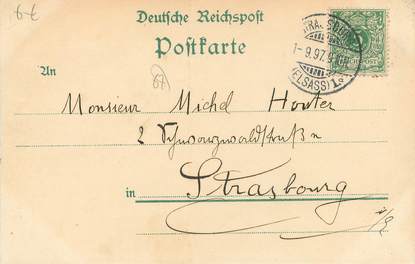 6-€
Deutsche Reichspost
Postkarte
An
Monsieur Michel Houter
2 Schwarzwaldstraße
in Strasbourg
1-9.97.
(ELSASS)
REICHSPOST